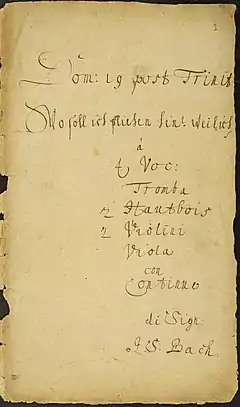 1
Dom: 19 post Trinit
Wo soll ich fliehen hin? weil ich
á
4 Voc:
Tromba
2 Hautbois
2 Violini
Viola
con
Continuo
di Sign
J. S. Bach